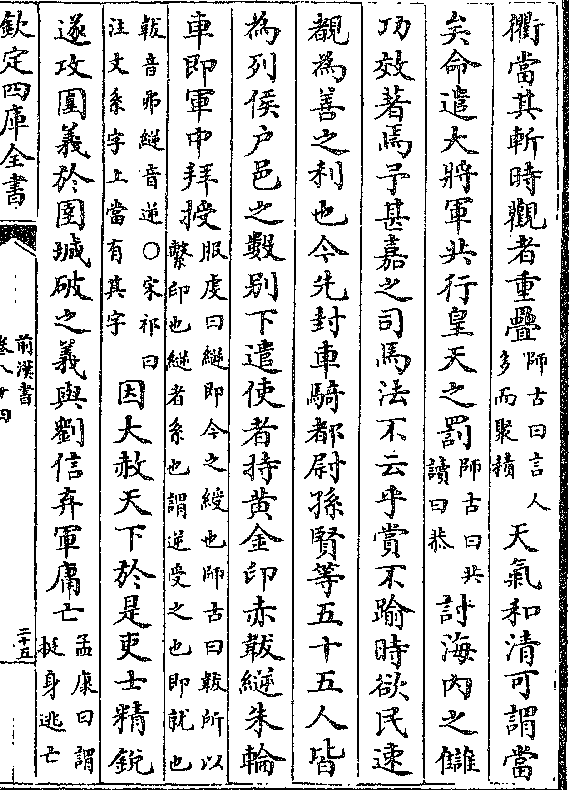 衢當其斬時觀者重疊師古曰言人多而聚積天氣和清可謂當
矣命遣大將軍共行皇天之罰師古曰共讀曰恭討海内之讎
功效著焉予甚嘉之司馬法不云乎賞不踰時欲民速
覩為善之利也今先封車騎都尉孫賢等五十五人皆
為列侯户邑之數别下遣使者持黄金印赤韍縌朱輪
車即軍中拜授服虔曰縌即今之綬也師古曰韍所以繫印也縌者系也謂逆受之也即就也
韍音弗縌音逆○宋祁曰注文系字上當有其字因大赦天下於是吏士精鋭
遂攻圍義於圉城破之義與劉信弃軍庸亡孟康曰謂挺身逃亡
欽定四庫全書
前漢書
卷八十四
二十五